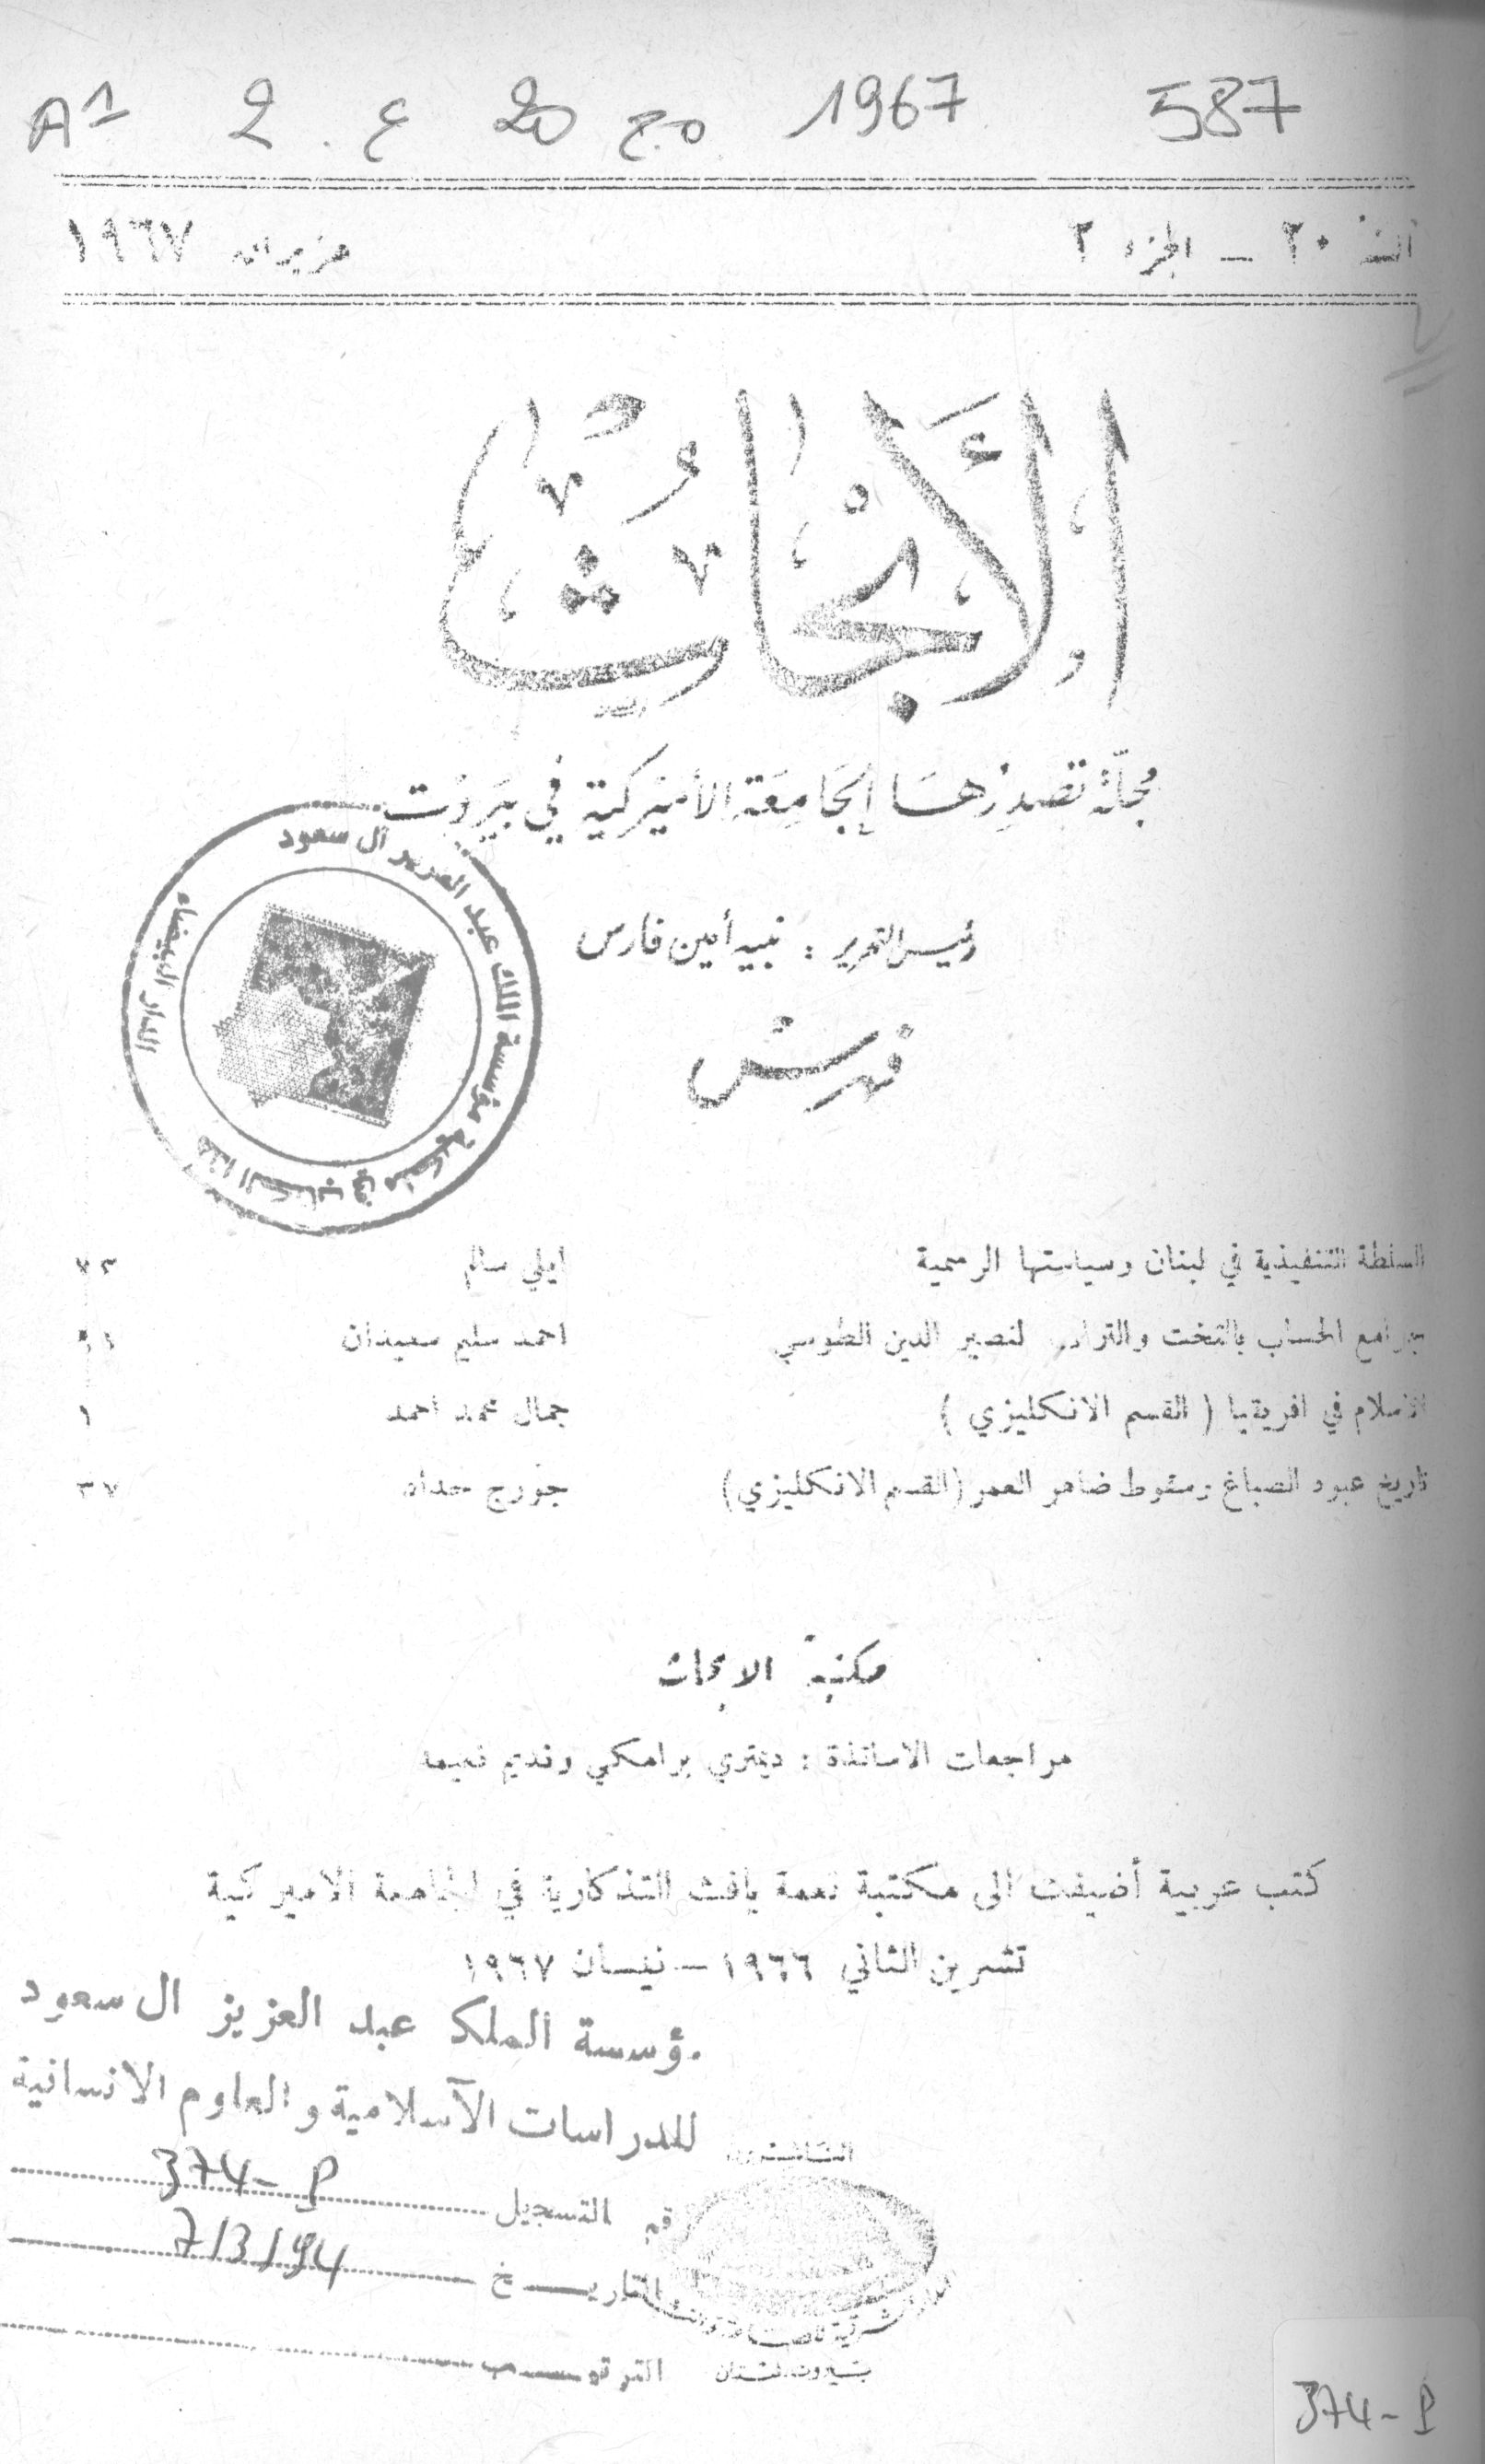 587 1967 مج 20 ع. 2 A1
السنة ٢٠ – الجزء ٢ حزيران ١٩٦٧
الأَبْحَاثُ
مجلّة تصدِرُهَا الجَامِعَة الأميركية في بَيرُوت
رئيس التحرير : نبيه أمين فارس
فهرسْ
السلطة التنفيذية في لبنان وسياستها الرسمية ايلي سالم ٧٣
جوامع الحساب بالتخت والتراب لنصير الدين الطوسي احمد سليم سعيدان ٩١
الاسلام في افريقيا ( القسم الانكليزي ) جمال محمد احمد ١
تاريخ عبود الصباغ وسقوط ضاهر العمر (القسم الانكليزي) جورج حداد ٣٧
مكتبة الابحاث
مراجعات الاساتذة : ديمتري برامكي ونديم نعيمه
كتب عربية أضيفت الى مكتبة نعمة يافث التذكارية في الجامعة الاميركية
تشرين الثاني ١٩٦٦ – نيسان ١٩٦٧
هذا الكتاب في ملكية مؤسسة الملك عبد العزيز آل سعود
الدار البيضاء
مؤسسة الملك عبد العزيز ال سعود
للدراسات الآسلامية و العلوم الانسانية
رقم التسجيل 374-P
التاريـــخ 7/3/94
الترقيـــب
بيروت لبنان
374-P